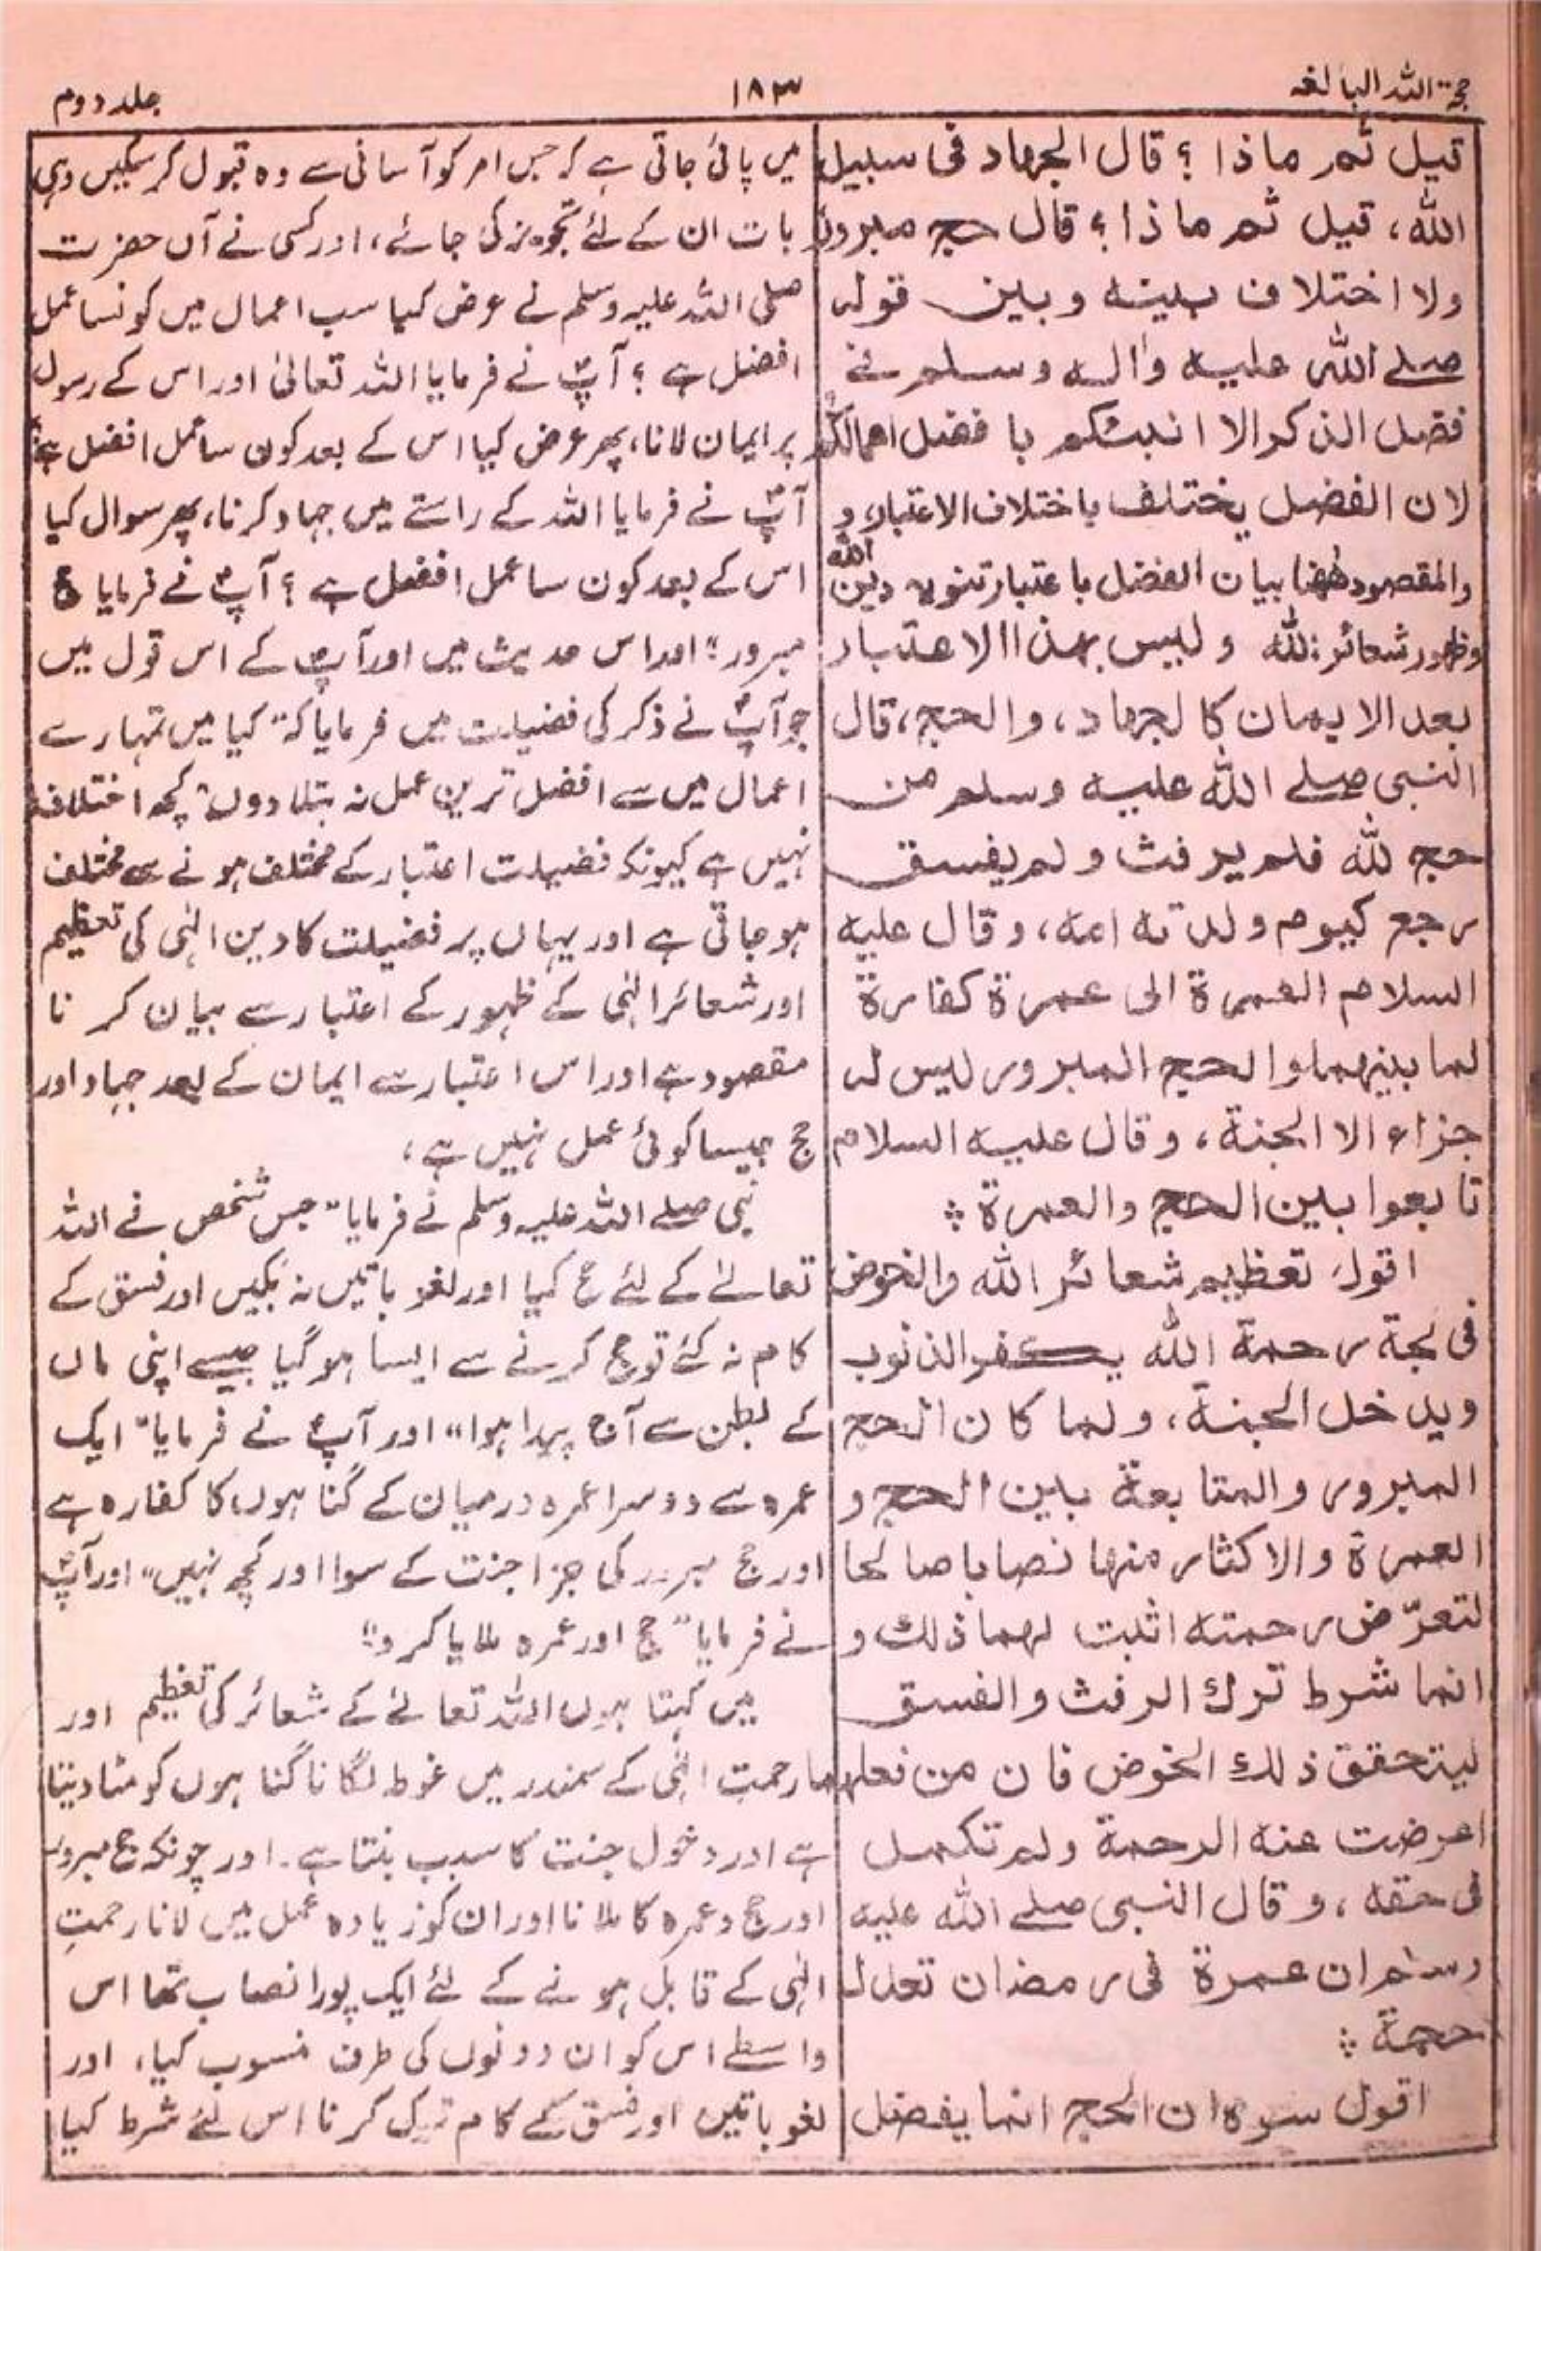 حجۃ اللہ البالغہ
۱۸۳
جلد دوم
قيل ثم ماذا ؟ قال الجهاد فى سبيل
الله، قيل ثم ماذا؟ قال حج مبرور
ولا اختلاف بينه وبين قوله
صلے الله عليه واله وسلم فى
فضل الذكر الا انبئكم با فضل اعمالكم
لان الفضل يختلف باختلاف الاعتبار، و
والمقصود ههنا بيان الفضل باعتبار تنويه دين الله
وظهور شعائر الله وليس بهذا الاعتبار
بعد الايمان كالجهاد، والحج، قال
النبى صلے الله عليه وسلم من
حج لله فلم يرفث ولم يفسق
رجع كيوم ولدته امه، وقال عليه
السلام العمرة الى عمرة كفارة
لما بينهما والحج المبرور ليس له
جزاء الا الجنة، وقال عليه السلام
تابعوا بين الحج والعمرة ؞
اقول تعظيم شعائر الله والخوض
فى لجة رحمة الله يكفر الذنوب
ويدخل الجنة، ولما كان الحج
المبرور والمتابعة بين الحج و
العمرة والاكثار منها نصابا صالحا
لتعرّض رحمته اثبت لهما ذلك و
انما شرط ترك الرفث والفسق
ليتحقق ذلك الخوض فان من فعلهما
اعرضت عنه الرحمة ولم تكمل
فى حقه، وقال النبى صلے الله عليه
وسلم ان عمرة فى رمضان تعدل
حجة ؞
اقول سره ان الحج انما يفضل
میں پائی جاتی ہے کہ جس امر کو آسانی سے وہ قبول کر سکیں وہی
بات ان کے لئے تجویز کی جائے، اور کسی نے آں حضرت
صلی اللہ علیہ وسلم نے عرض کیا سب اعمال میں کونسا عمل
افضل ہے ؟ آپؐ نے فرمایا اللہ تعالیٰ اور اس کے رسول
پر ایمان لانا، پھر عرض کیا اس کے بعد کون سا عمل افضل ہے؟
آپؐ نے فرمایا اللہ کے راستے میں جہاد کرنا، پھر سوال کیا
اس کے بعد کون سا عمل افضل ہے ؟ آپؐ نے فرمایا حج
مبرور؛ اور اس حدیث میں اور آپؐ کے اس قول میں
جو آپؐ نے ذکر کی فضیلت میں فرمایا کہ "کیا میں تمہارے
اعمال میں سے افضل ترین عمل نہ بتلا دوں" کچھ اختلاف
نہیں ہے کیونکہ فضیلت اعتبار کے مختلف ہونے سے مختلف
ہو جاتی ہے اور یہاں پر فضیلت کا دین الٰہی کی تعظیم
اور شعائر الٰہی کے ظہور کے اعتبار سے بیان کر نا
مقصود ہے اور اس اعتبار سے ایمان کے بعد جہاد اور
حج جیسا کوئی عمل نہیں ہے،
نبی صلے اللہ علیہ وسلم نے فرمایا "جس شخص نے اللہ
تعالےٰ کے لئے حج کیا اور لغو باتیں نہ بکیں اور فسق کے
کام نہ کئے تو حج کرنے سے ایسا ہو گیا جیسے اپنی ماں
کے بطن سے آج پیدا ہوا" اور آپؐ نے فرمایا "ایک
عمرہ سے دوسرا عمرہ درمیان کے گناہوں کا کفارہ ہے
اور حج مبرور کی جزا جنت کے سوا اور کچھ نہیں" اور آپؐ
نے فرمایا "حج اور عمرہ ملایا کرو"؛
میں کہتا ہوں اللہ تعالےٰ کے شعائر کی تعظیم اور
رحمت الٰہی کے سمندر میں غوطہ لگانا گناہوں کو مٹا دیتا
ہے اور دخول جنت کا سبب بنتا ہے۔ اور چونکہ حج مبرور
اور حج و عمرہ کا ملانا اور ان کو زیادہ عمل میں لانا رحمتِ
الٰہی کے قابل ہونے کے لئے ایک پورا نصاب تھا اس
واسطے اس کو ان دونوں کی طرف منسوب کیا، اور
لغو باتیں اور فسق کے کام ترک کرنا اس لئے شرط کیا